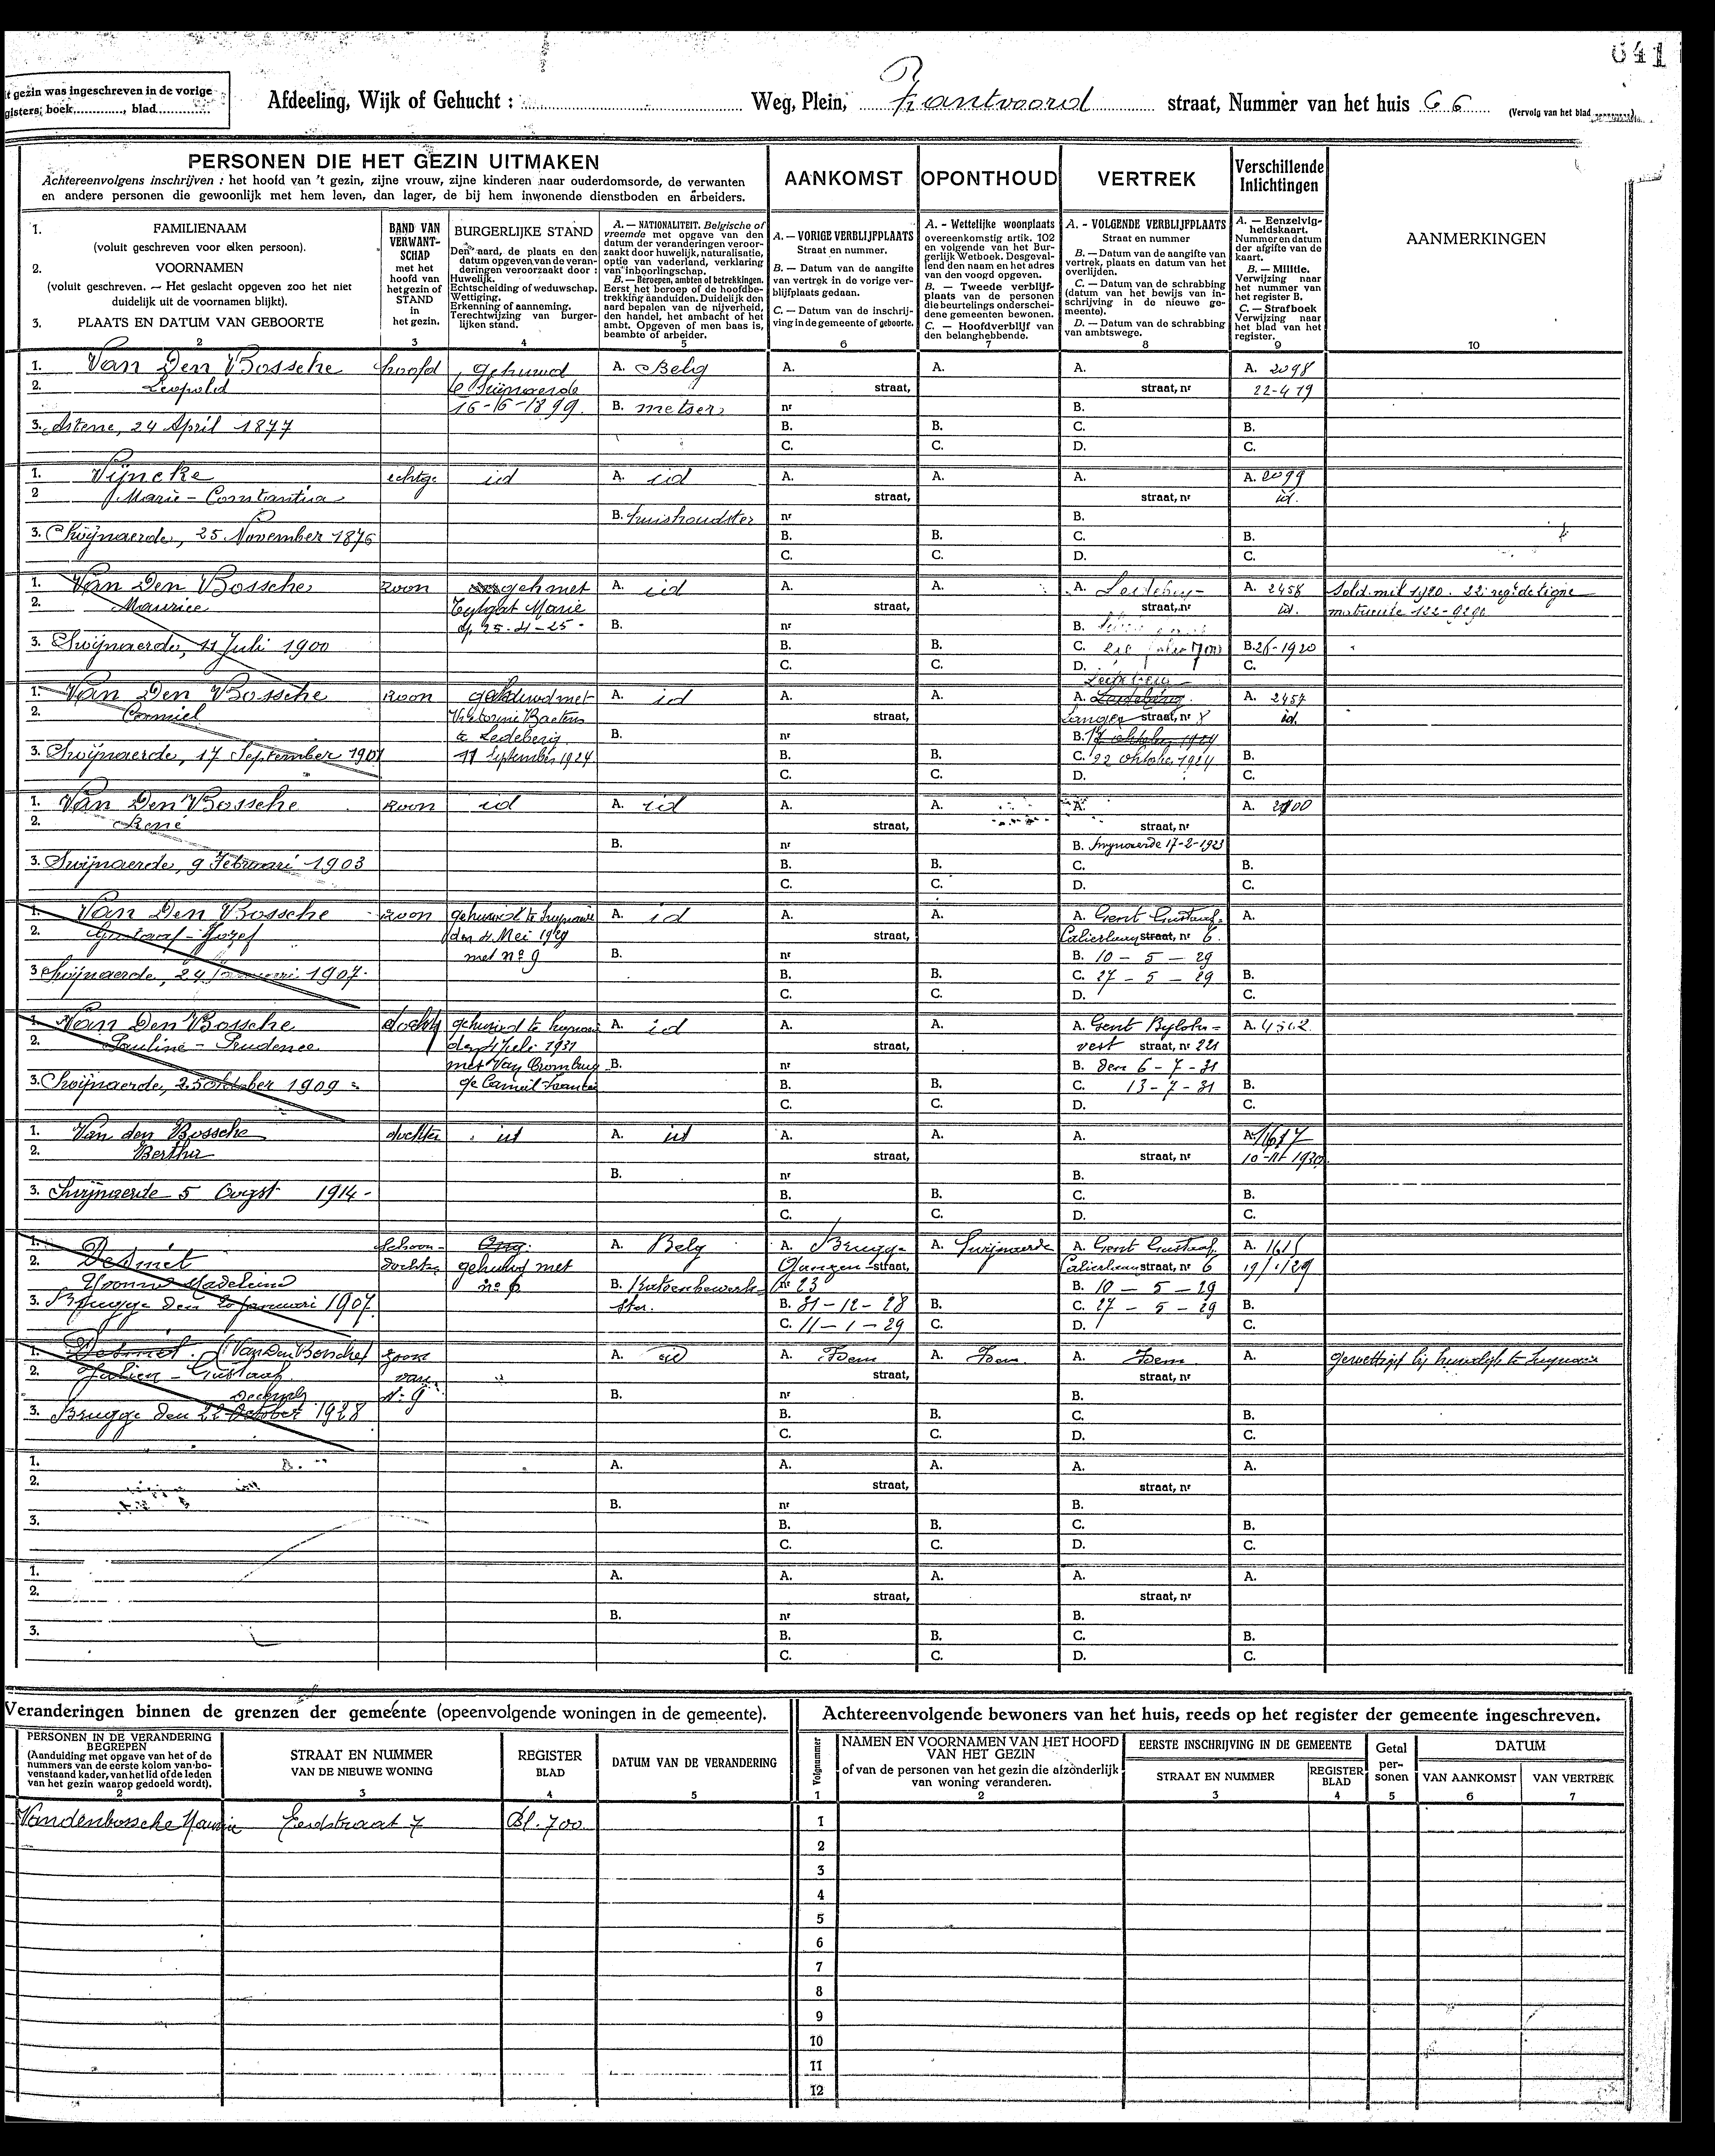 641
't gezin was ingeschreven in de vorige
gisters, boek............, blad............
Afdeeling, Wijk of Gehucht : Weg, Plein, Zantvoord straat, Nummer van het huis 66 (Vervolg van het blad
PERSONEN DIE HET GEZIN UITMAKEN
Achtereenvolgens inschrijven : het hoofd van 't gezin, zijne vrouw, zijne kinderen naar ouderdomsorde, de verwanten
en andere personen die gewoonlijk met hem leven, dan lager, de bij hem inwonende dienstboden en arbeiders.
AANKOMST
OPONTHOUD
VERTREK
Verschillende
Inlichtingen
1. FAMILIENAAM
(voluit geschreven voor elken persoon).
2. VOORNAMEN
(voluit geschreven. — Het geslacht opgeven zoo het niet
duidelijk uit de voornamen blijkt).
3. PLAATS EN DATUM VAN GEBOORTE
2
BAND VAN
VERWANT-
SCHAP
met het
hoofd van
het gezin of
STAND
in
het gezin.
3
BURGERLIJKE STAND
Den aard, de plaats en den
datum opgeven van de veran-
deringen veroorzaakt door :
Huwelijk.
Echtscheiding of weduwschap.
Wettiging.
Erkenning of aanneming.
Terechtwijzing van burger-
lijken stand.
4
A. — NATIONALITEIT. Belgische of
vreemde met opgave van den
datum der veranderingen veroor-
zaakt door huwelijk, naturalisatie,
optie van vaderland, verklaring
van inboorlingschap.
B. — Beroepen, ambten of betrekkingen.
Eerst het beroep of de hoofdbe-
trekking aanduiden. Duidelijk den
aard bepalen van de nijverheid,
den handel, het ambacht of het
ambt. Opgeven of men baas is,
beambte of arbeider.
5
A. — VORIGE VERBLIJFPLAATS
Straat en nummer.
B. — Datum van de aangifte
van vertrek in de vorige ver-
blijfplaats gedaan.
C. — Datum van de inschrij-
ving in de gemeente of geboorte.
6
A. - Wettelijke woonplaats
overeenkomstig artik. 102
en volgende van het Bur-
gerlijk Wetboek. Desgeval-
lend den naam en het adres
van den voogd opgeven.
B. — Tweede verblijf-
plaats van de personen
die beurtelings onderschei-
dene gemeenten bewonen.
C. — Hoofdverblijf van
den belanghebbende.
7
A. - VOLGENDE VERBLIJFPLAATS
Straat en nummer
B. — Datum van de aangifte van
vertrek, plaats en datum van het
overlijden.
C. — Datum van de schrabbing
(datum van het bewijs van in-
schrijving in de nieuwe ge-
meente).
D. — Datum van de schrabbing
van ambtswege.
8
A. — Eenzelvig-
heldskaart.
Nummer en datum
der afgifte van de
kaart.
B. — Militie.
Verwijzing naar
het nummer van
het register B.
C. — Strafboek
Verwijzing naar
het blad van het
register.
9
AANMERKINGEN
10
1. Van Den Bossche hoofd gehuwd A. Belg A. A. A. A. 2098
2. Leopold straat, straat, nr 22-4 19
16-6-1899. B. metser nr B.
3. Astene, 24 April 1877 B. B. C. B.
C. C. D. C.
1. Vijncke echtge id A. id A. A. A. A. 2099
2 Marie-Constantia straat, straat, nr id.
B. huishoudster nr B.
3. Swijnaerde, 25 November 1876 B. B. C. B.
C. C. D. C.
1. Van Den Bossche zoon geh met A. id A. A. A. A. 2458 Sold. mil 1920. 22e reg. de ligne
2. Maurice Marie straat, straat, nr id. matricule 122-9290
25-4-25- B. nr B.
3. Swijnaerde, 11 Juli 1900 B. B. C. B. 26-1920
C. C. D. C.
1. Van Den Bossche zoon gehuwd met A. id A. A. A. Ledeberg A. 2457
2. Camiel Victorine Baetens straat, Langen straat, nr 8 id.
te Ledeberg B. nr B. 17 oktober 1924
3. Swijnaerde, 17 September 1901 11 September 1924 B. B. C. 22 oktober 1924 B.
C. C. D. C.
1. Van Den Bossche zoon id A. id A. A. A. A. 2100
2. René straat, straat, nr
B. nr B. Swynaerde 17-2-1923
3. Swijnaerde, 9 Februari 1903 B. B. C. B.
C. C. D. C.
1. Van Den Bossche zoon gehuwd te A. id A. A. A. Gent Gustaaf- A.
2. Gustaaf-Jozef den 4 Mei 1929 straat, Callierlaan straat, nr 6.
met no 9 B. nr B. 10 - 5 - 29
3 Swijnaerde, 24 Januari 1907- B. B. C. 27 - 5 - 29 B.
C. C. D. C.
1. Van Den Bossche docht gehuwd te A. id A. A. A. Gent Byloke- A. 4512
2. Pauline-Prudence den 4 Juli 1931 straat, vest straat, nr 221
met Van B. nr B. den 6-7-31
3. Swijnaerde, 25 oktober 1909 B. B. C. 13-7-31 B.
C. C. D. C.
1. Van den Bossche dochter id A. id A. A. A. A. 1617
2. Bertha straat, straat, nr 10-11-1930
B. nr B.
3. Swijnaerde 5 Oogst 1914- B. B. C. B.
C. C. D. C.
1. Desmet schoon- Ong. A. Belg A. Brugge A. Swijnaerde A. Gent Gustaaf A. 1615
2. dochter gehuwd met straat, Callierlaan straat, nr 6 19/1/29
Yvonne Madeleine no 6 B. nr 23 B. 10 - 5 - 29
3. Brugge den 20 januari 1907. B. 31-12-28 B. C. 27 - 5 - 29 B.
C. 11-1-29 C. D. C.
1. Desmet. (Van Den Bossche) zoon A. id A. Idem A. Idem A. Idem A. gewettigd bij huwelijk te
2. Julien-Gustaaf van straat, straat, nr
Decemb N: 9 B. nr B.
3. Brugge den 22 October 1928 B. B. C. B.
C. C. D. C.
1. A. A. A. A. A.
2. straat, straat, nr
B. nr B.
3. B. B. C. B.
C. C. D. C.
1. A. A. A. A. A.
2. straat, straat, nr
B. nr B.
3. B. B. C. B.
C. C. D. C.
Veranderingen binnen de grenzen der gemeente (opeenvolgende woningen in de gemeente).
PERSONEN IN DE VERANDERING
BEGREPEN
(Aanduiding met opgave van het of de
nummers van de eerste kolom van bo-
venstaand kader, van het lid of de leden
van het gezin waarop gedoeld wordt).
2
STRAAT EN NUMMER
VAN DE NIEUWE WONING
3
REGISTER
BLAD
4
DATUM VAN DE VERANDERING
5
Vandenbossche Maurice Eedstraat 7 Bl. 700
Achtereenvolgende bewoners van het huis, reeds op het register der gemeente ingeschreven.
Volgnummer
1
NAMEN EN VOORNAMEN VAN HET HOOFD
VAN HET GEZIN
of van de personen van het gezin die afzonderlijk
van woning veranderen.
2
EERSTE INSCHRIJVING IN DE GEMEENTE
STRAAT EN NUMMER
3
REGISTER
BLAD
4
Getal
per-
sonen
5
DATUM
VAN AANKOMST
6
VAN VERTREK
7
1
2
3
4
5
6
7
8
9
10
11
12